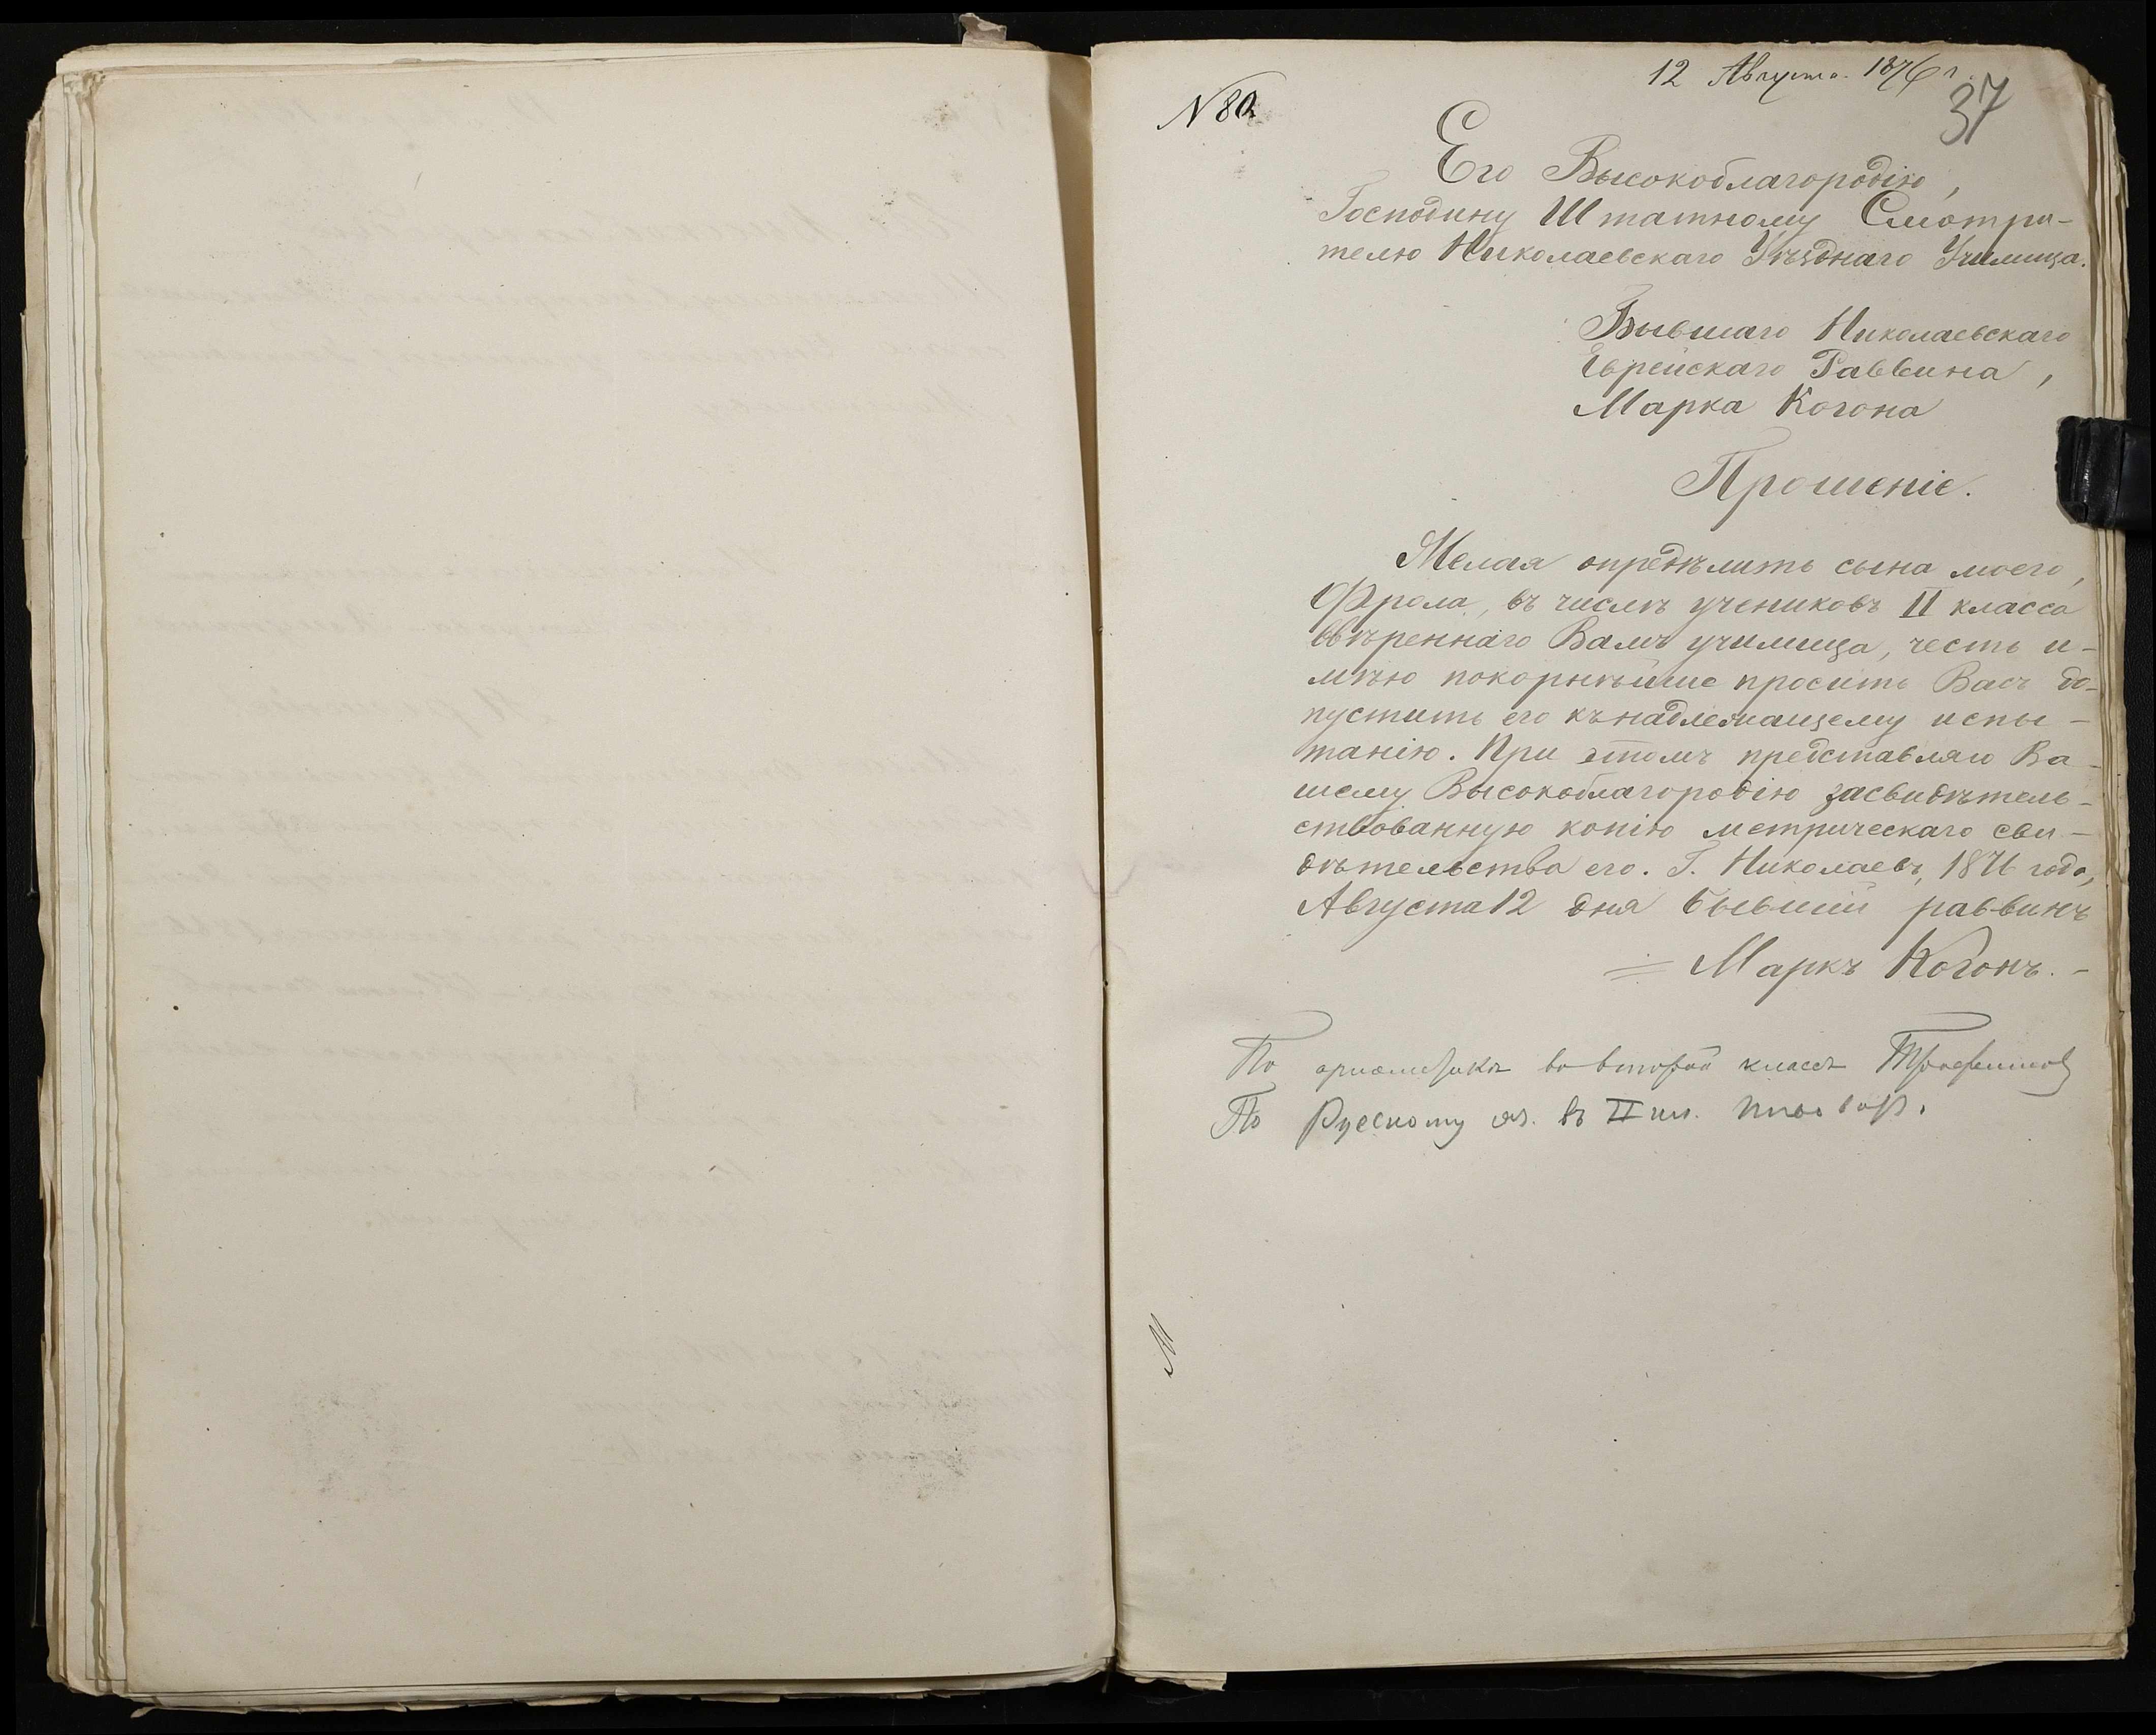 12 Августа. 1876 г.
37
N 80
Его Высокоблагородію,
Господину Штатному Смотри-
телю Николаевскаго Уѣзднаго Училища.
Бывшаго Николаевскаго
Еврейскаго Раввина,
Марка Когона
Прошеніе.
Желая опредѣлить сына моего,
Фрола, въ числѣ учениковъ II класса
ввѣреннаго Вамъ училища, честь и-
мѣю покорнѣйше просить Васъ до-
пустить его къ надлежащему испы-
танію. При этомъ представляю Ва-
шему Высокоблагородію засвидѣтель-
ствованную копію метрическаго сви-
дѣтельства его. Г. Николаевъ, 1876 года,
Августа 12 дня бывшій раввинъ
Маркъ Когонъ.-
По ариѳметикѣ во второй классъ
По Русскому яз. въ II кл.